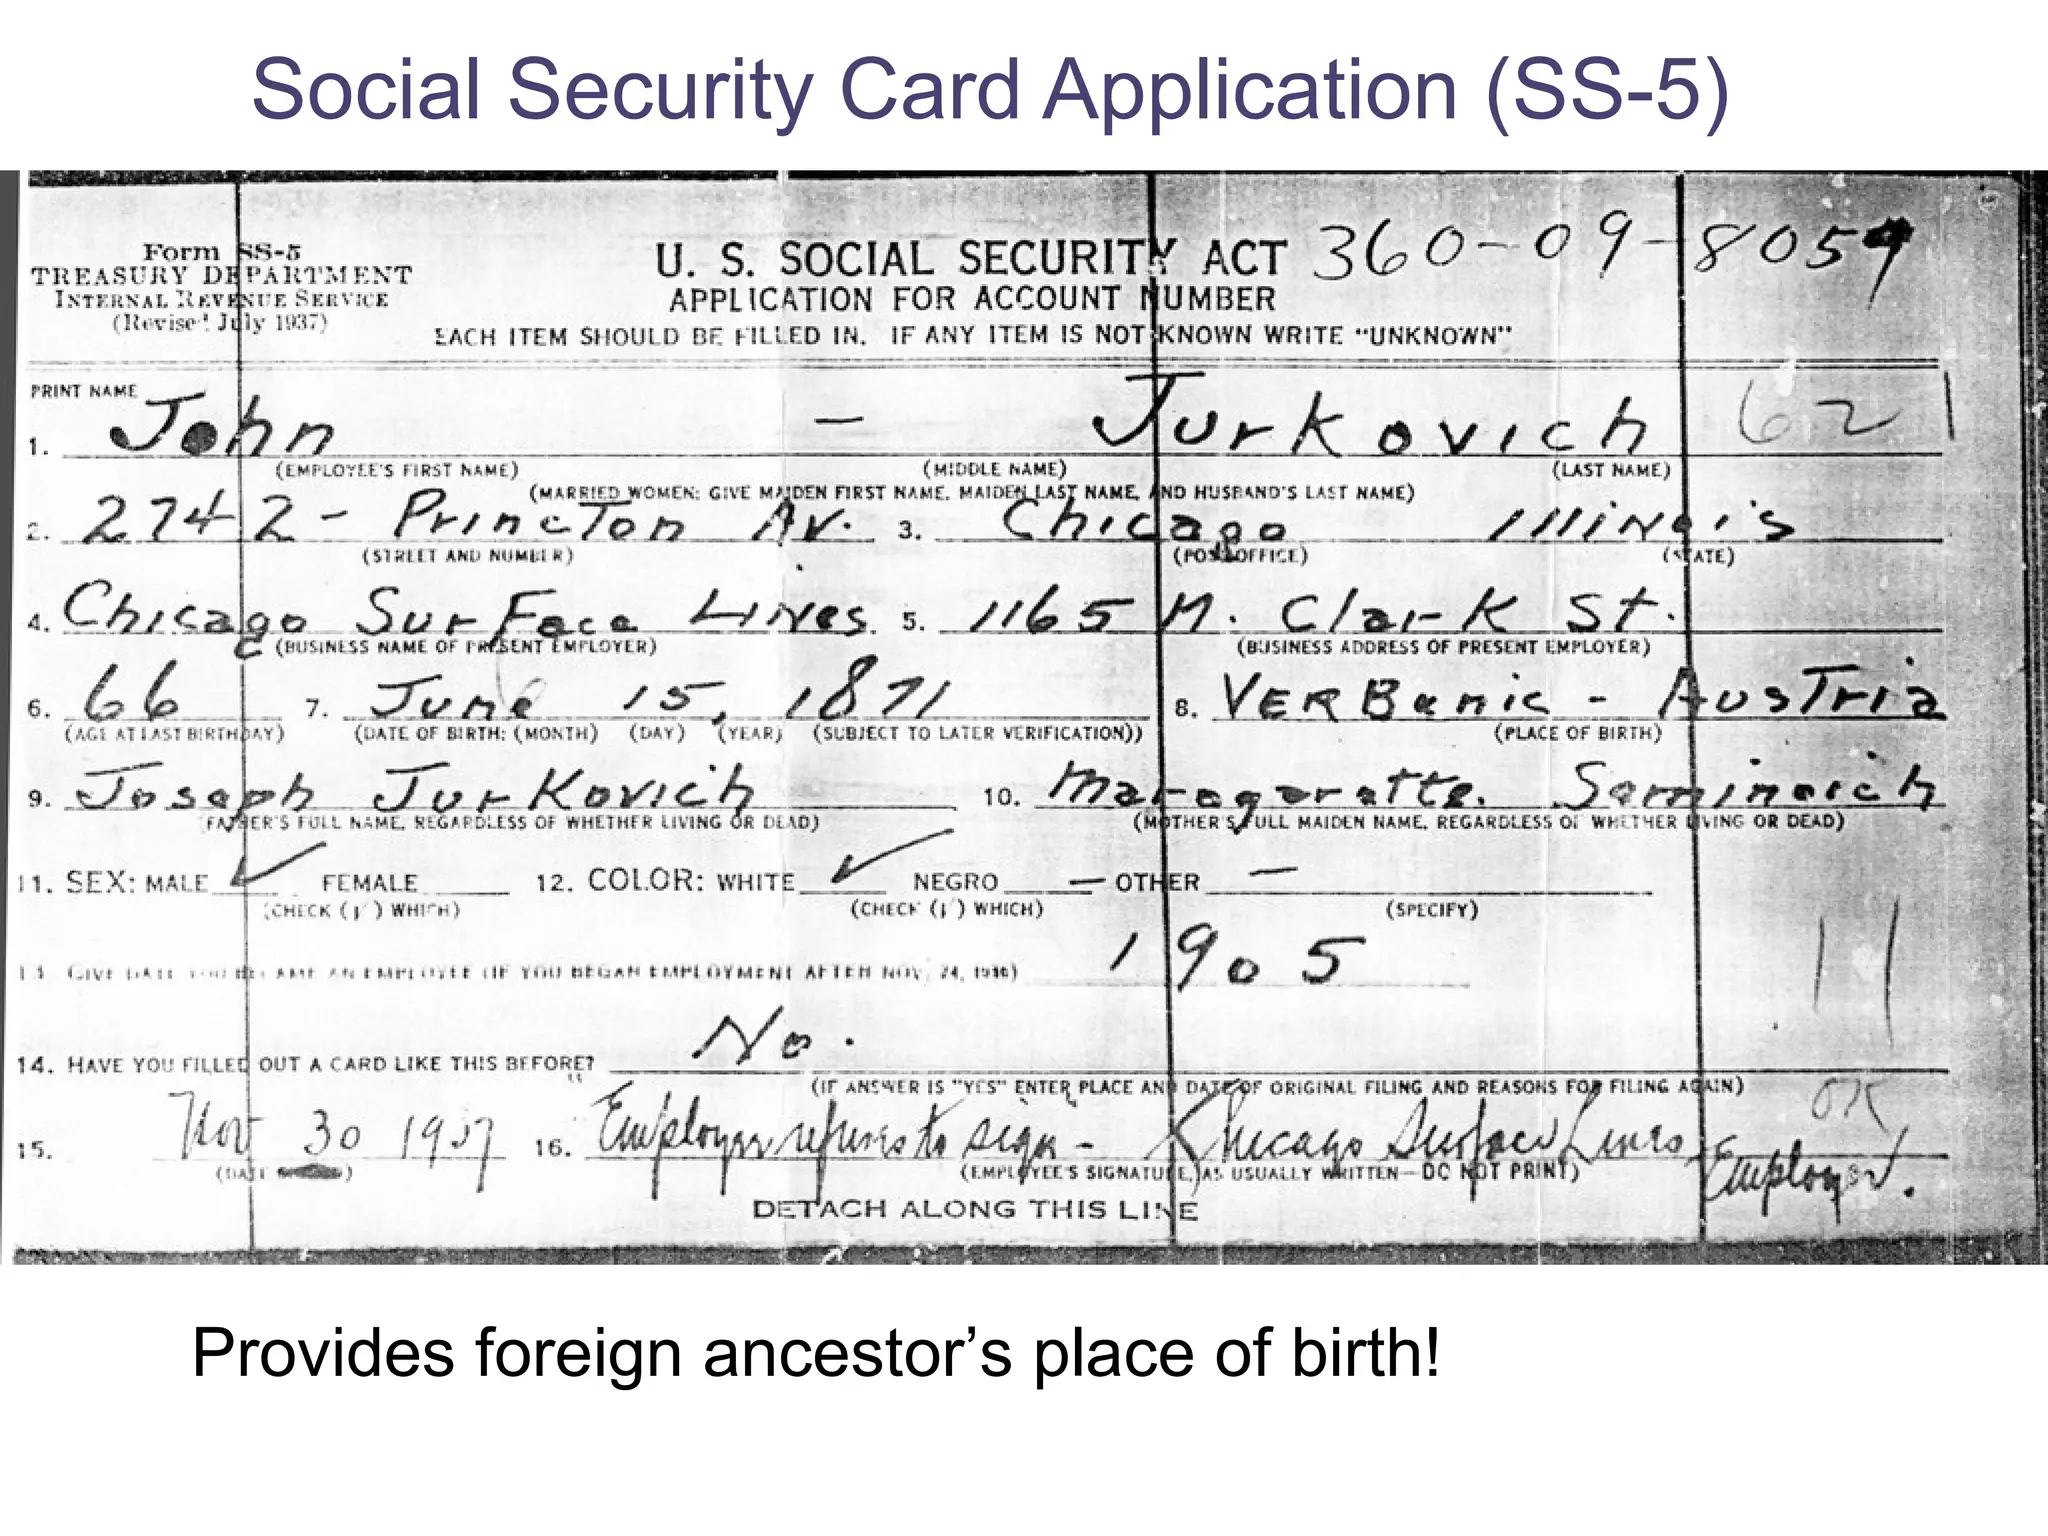 Social Security Card Application (SS-5)
Form SS-5
TREASURY DEPARTMENT
INTERNAL REVENUE SERVICE
(Revised July 1937)
U. S. SOCIAL SECURITY ACT 360-09-8059
APPLICATION FOR ACCOUNT NUMBER
EACH ITEM SHOULD BE FILLED IN. IF ANY ITEM IS NOT KNOWN WRITE "UNKNOWN"
PRINT NAME
1. John — Jurkovich 621
(EMPLOYEE'S FIRST NAME) (MIDDLE NAME) (LAST NAME)
(MARRIED WOMEN: GIVE MAIDEN FIRST NAME, MAIDEN LAST NAME, AND HUSBAND'S LAST NAME)
2. 2742 - Princton Av. 3. Chicago Illinois
(STREET AND NUMBER) (POST OFFICE) (STATE)
4. Chicago Surface Lines 5. 1165 N. Clark St.
(BUSINESS NAME OF PRESENT EMPLOYER) (BUSINESS ADDRESS OF PRESENT EMPLOYER)
6. 66 7. June 15, 1871 8. VERBanic - Austria
(AGE AT LAST BIRTHDAY) (DATE OF BIRTH: (MONTH) (DAY) (YEAR) (SUBJECT TO LATER VERIFICATION)) (PLACE OF BIRTH)
9. Joseph Jurkovich 10. Maragarette
(FATHER'S FULL NAME, REGARDLESS OF WHETHER LIVING OR DEAD) (MOTHER'S FULL MAIDEN NAME, REGARDLESS OF WHETHER LIVING OR DEAD)
11. SEX: MALE ✓ FEMALE 12. COLOR: WHITE ✓ NEGRO — OTHER —
(CHECK (✓) WHICH) (CHECK (✓) WHICH) (SPECIFY)
13. GIVE DATE YOU BECAME AN EMPLOYEE (IF YOU BEGAN EMPLOYMENT AFTER NOV. 24, 1936) 1905
11
14. HAVE YOU FILLED OUT A CARD LIKE THIS BEFORE? No.
(IF ANSWER IS "YES" ENTER PLACE AND DATE OF ORIGINAL FILING AND REASONS FOR FILING AGAIN)
OK
15. Nov 30 1937 16. Employer refuses to sign - Chicago Surface Lines - Employer.
(DATE) (EMPLOYEE'S SIGNATURE, AS USUALLY WRITTEN—DO NOT PRINT)
DETACH ALONG THIS LINE
Provides foreign ancestor's place of birth!